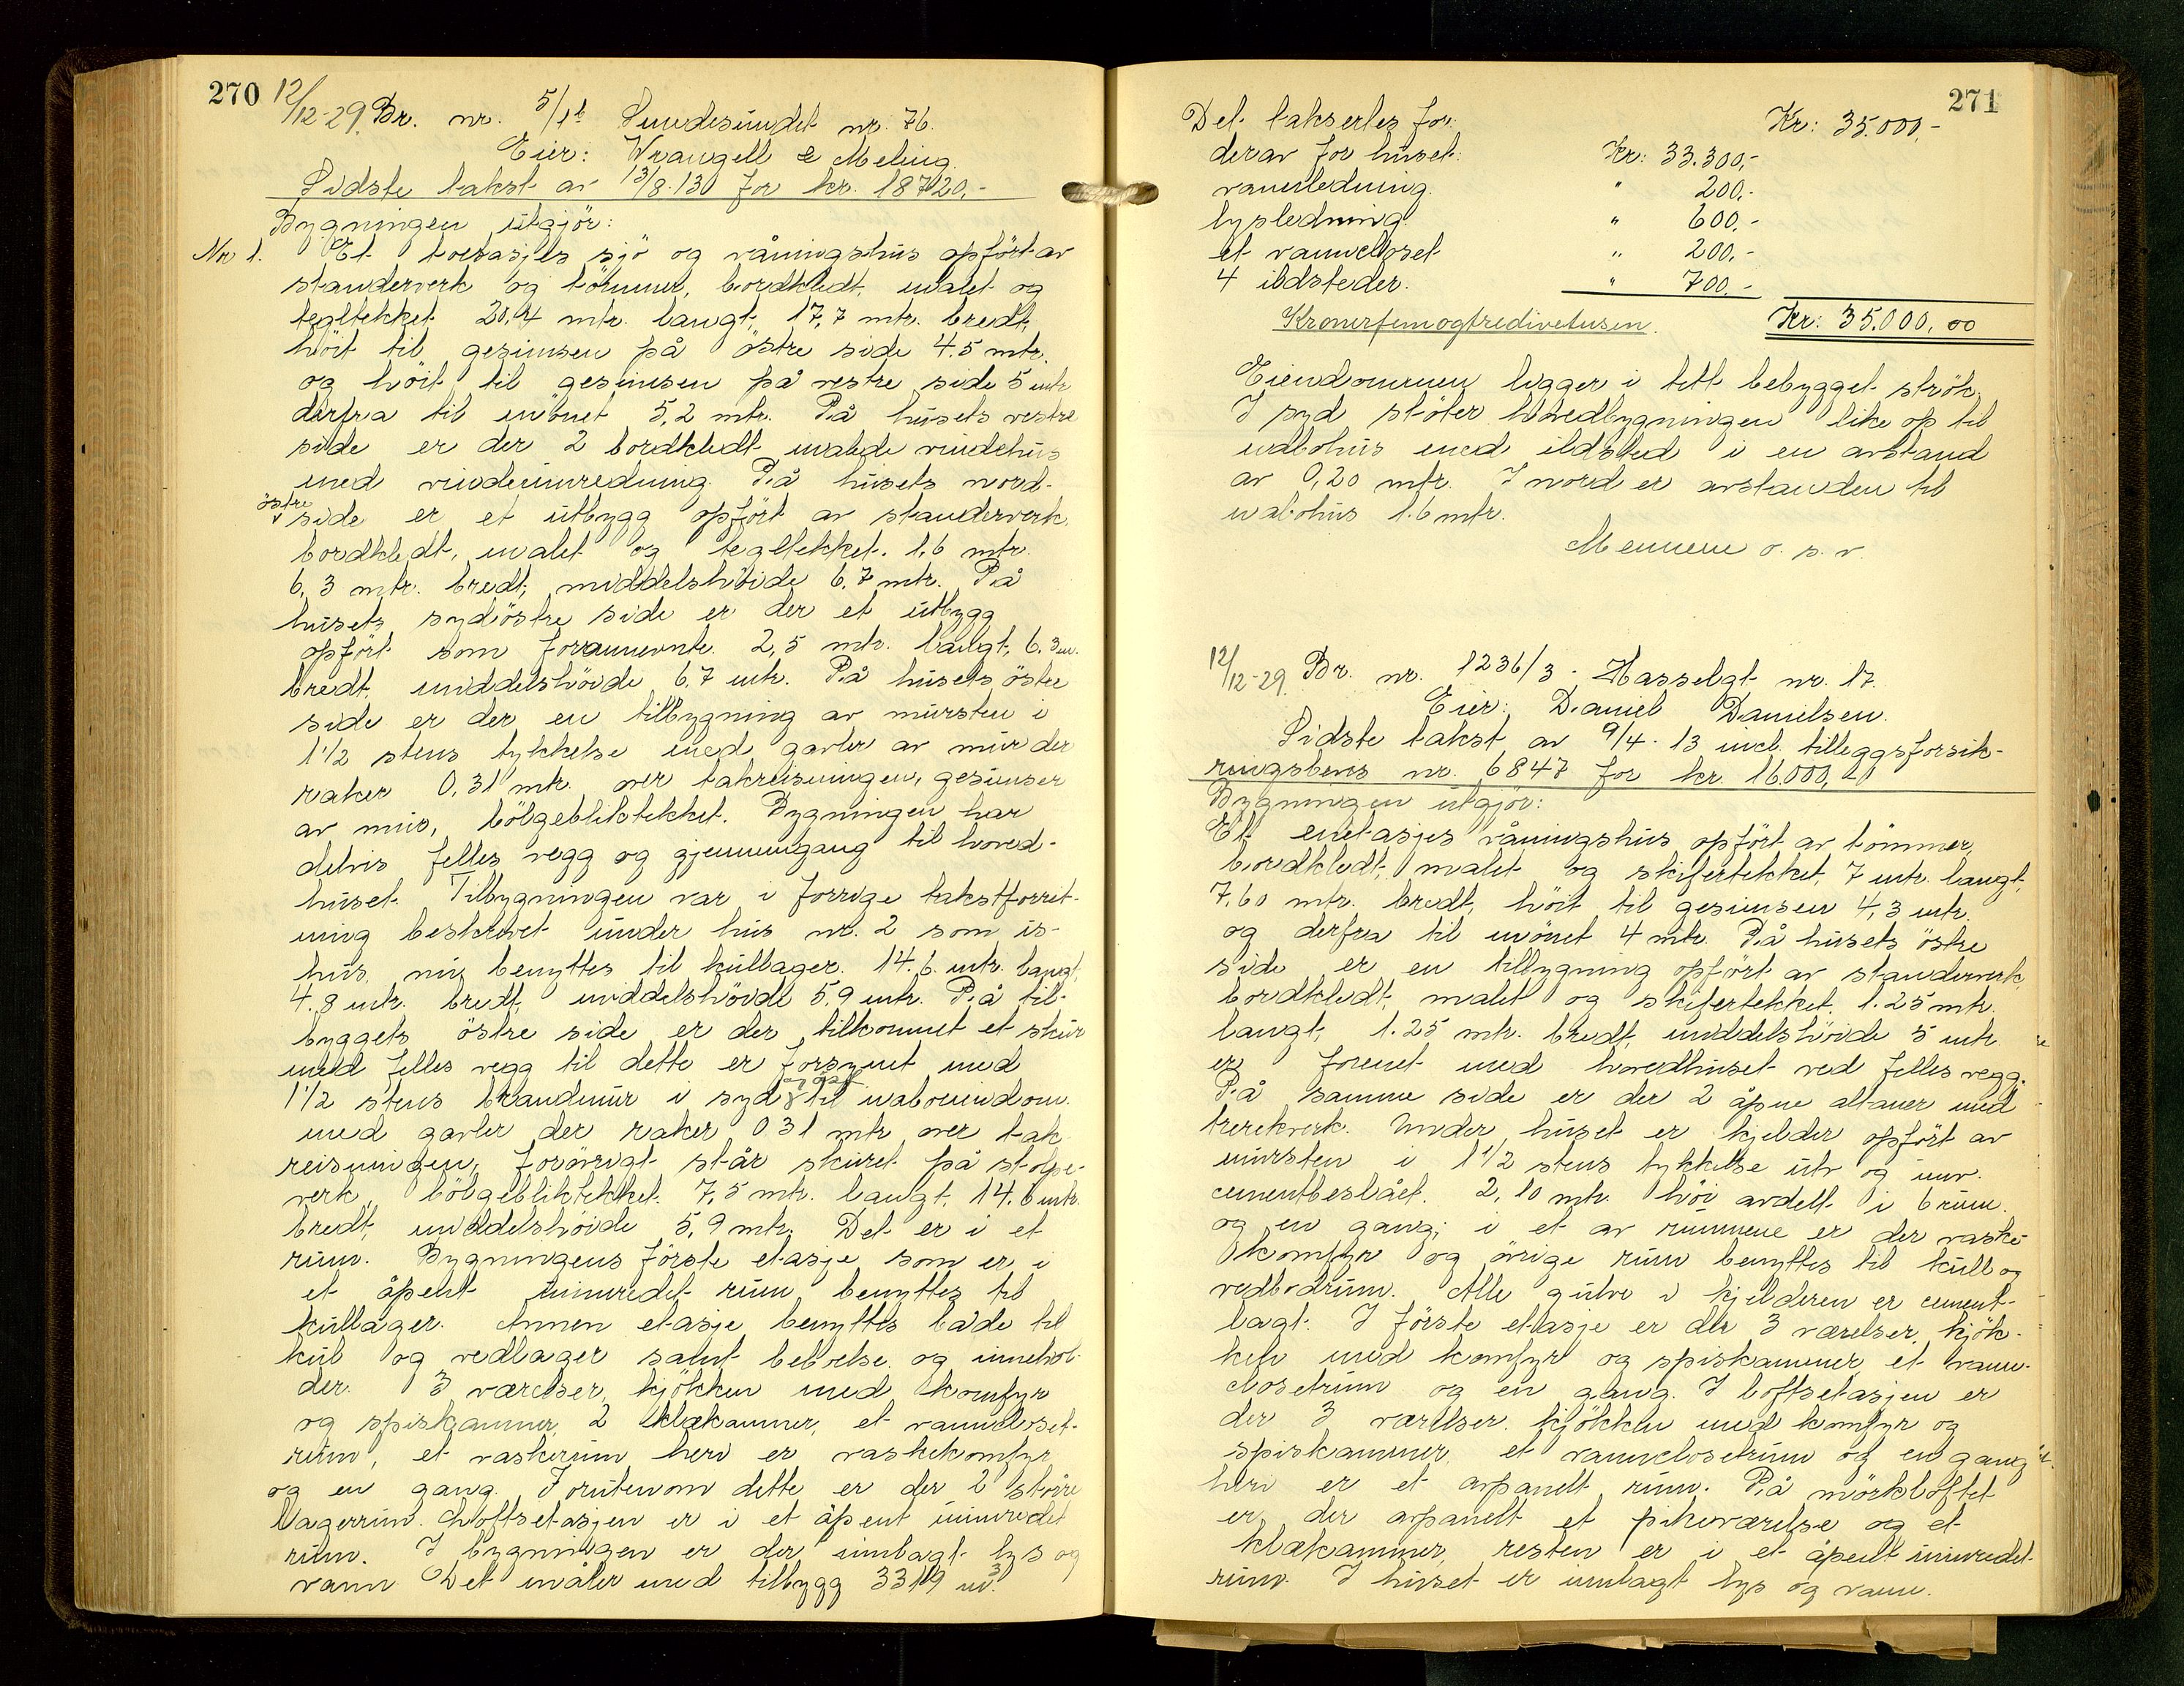 270
12/12-29. Br. nr. 5/1b Sundesundet nr. 76.
Eier: Wrangell & Meling.
Sidste takst av 13/8.130 for kr. 18720,-
Bygningen utgjör:
Nr 1. Et toetasjes sjö og våningshus opfört av
standerverk og tömmer, bordkledt, malet og
tegltekket 20,4 mtr. langt, 17,7 mtr. bredt,
höit til gesimsen på östre side 4.5 mtr.
og höit til gesimsen på vestre side 5 mtr
derfra til mönet 5,2 mtr. På husets vestre
side er der 2 bordkledt malede vindehus
med vindeinnredning. På husets nord-
östre
side er et utbygg opfört av standerverk,
bordkledt, malet og tegltekket. 1,6 mtr.
6,3 mtr. bredt, middelshöide 6,7 mtr. På
husets sydöstre side er der et utbygg
opfört som forannevnte. 2,5 mtr. langt, 6.3 m.
bredt, middelshöide 6,7 mtr. På husets östre
side er der en tilbygning av mursten i
1 1/2 stens tykkelse med gavler av mur der
raker 0,31 mtr. over takreisningen, gesimser
av mur, bölgebliktekket. Bygningen har
delvis felles vegg og gjennemgang til hoved-
huset. Tilbygningen var i forrige takstforret-
ning beskrevet under hus nr. 2 som is-
hus, nu benyttes til kullager. 14.6 mtr. langt,
4.8 mtr. bredt, middelshöide 5,9 mtr. På til-
byggets östre side er der tilkommet et skur
med felles vegg til dette er forsynet med
og öst
1 1/2 stens brandmur i syd til naboeiendom.
med gavler der raker 0 31 mtr over tak
reisningen, forövrigt står skuret på stolpe-
verk, bölgebliktekket. 7,5 mtr. langt, 14.6 mtr.
bredt, middelshöide 5,9 mtr. Det er i et
rum. Bygningens förste etasje som er i
et åpent uinnredet rum benyttes til
kullager. Annen etasje benyttes både til
kul og vedlager samt bebvelse og innehol-
der 3 værelser, kjökken med komfyr
og spiskammer, 2 klækammer, et vannkloset-
rum, et vaskerum heri er vaskekomfyr
og en gang. Forutenom dette er der 2 störe
lagerrum. Loftsetasjen er i et åpent uinnredet
rum. I bygningen er der innlagt lys og
vann Det måler med tilbygg 3319 m³.
271
Det takseres for: Kr: 35.000,-
derav for huset: Kr: 33.300,-
vannledning. " 200,-
lysledning. " 600,-
et vanncloset " 200,-
4 ildsteder. " 700,-
Kronerfemogtredivetusen. Kr: 35.000,00
Eiendommen ligger i tett bebygget strök,
I syd stöter hovedbygningen like op til
nabohus med ildsted i en avstand
av 0,20 mtr. I nord er avstanden til
nabohus 1.6 mtr.
Mennene o. s. v.
12/12-29. Br. nr. 1236/3. Hasselgt nr. 17.
Eier: Daniel Danielsen.
Sidste takst av 9/4-13 incl. tilleggsforsik-
ringsbevis nr. 6847 for kr. 16.000,-
Bygningen utgjör:
Et enetasjes våningshus opfört av tömmer,
bordkledt, malet og skifertekket, 7 mtr. langt,
7,60 mtr. bredt, höit til gesimsen 4,3 mtr.
og derfra til mönet 4 mtr. På husets östre
side er en tilbygning opfört av standerverk,
bordkledt, malet og skifertekket. 1.25 mtr.
langt, 1.25 mtr. bredt, middelshöide 5 mtr.
er forenet med hovedhuset ved felles vegg.
På samme side er der 2 åpne altaner med
trerekverk. Under huset er kjelder opfört av
mursten i 1 1/2 stens tykkelse utv og innv.
cementbeslået. 2,10 mtr. höi avdelt i 6 rum.
og en gang; i et av rummene er der vaske
komfyr og övrige rum benyttes til kull og
vedbodrum. Alle gulve i kjelderen er cement-
lagt. I förste etasje er der 3 værelser, kjök-
ken med komfyr og spiskammer et vann-
closetrum og en gang. I loftsetasjen er
der 3 værelser. kjökken med komfyr og
spiskammer, et vannclosetrum og en gang
heri er et avpanelt rum. På mörkloftet
er der avpanelt et pikeværelse og et
klækammer, resten er i et åpent uinnredet
rum. I huset er innlagt lys og vann.